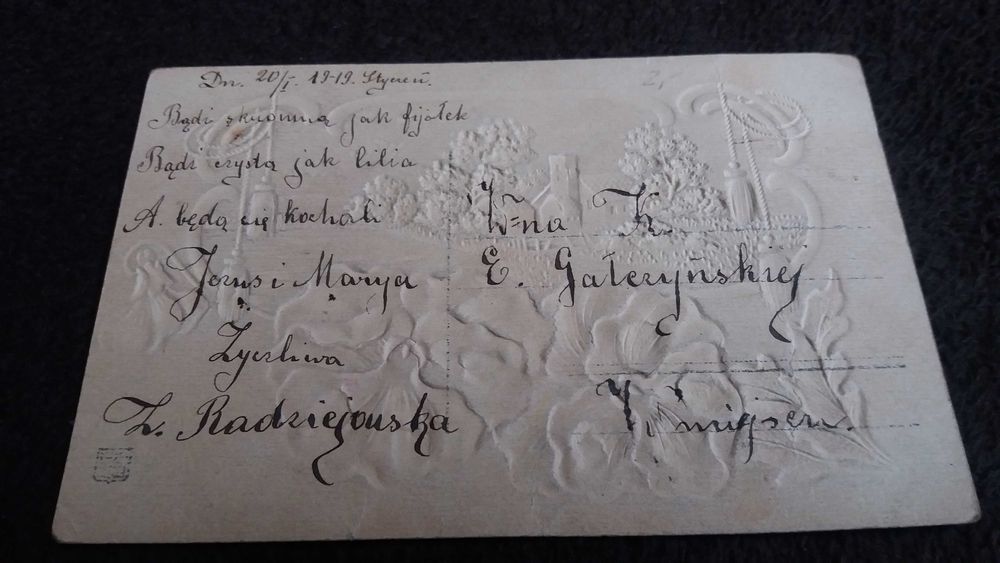 Dn. 20/I. 1919. Styczeń.
Bądź skromną jak fijołek
Bądź czystą jak lilia
A. będą cię kochali
Jezus i Marya
Życzliwa
Z. Radziejowska
W=na K.
E. Gałczyńskiej
W miejscu.